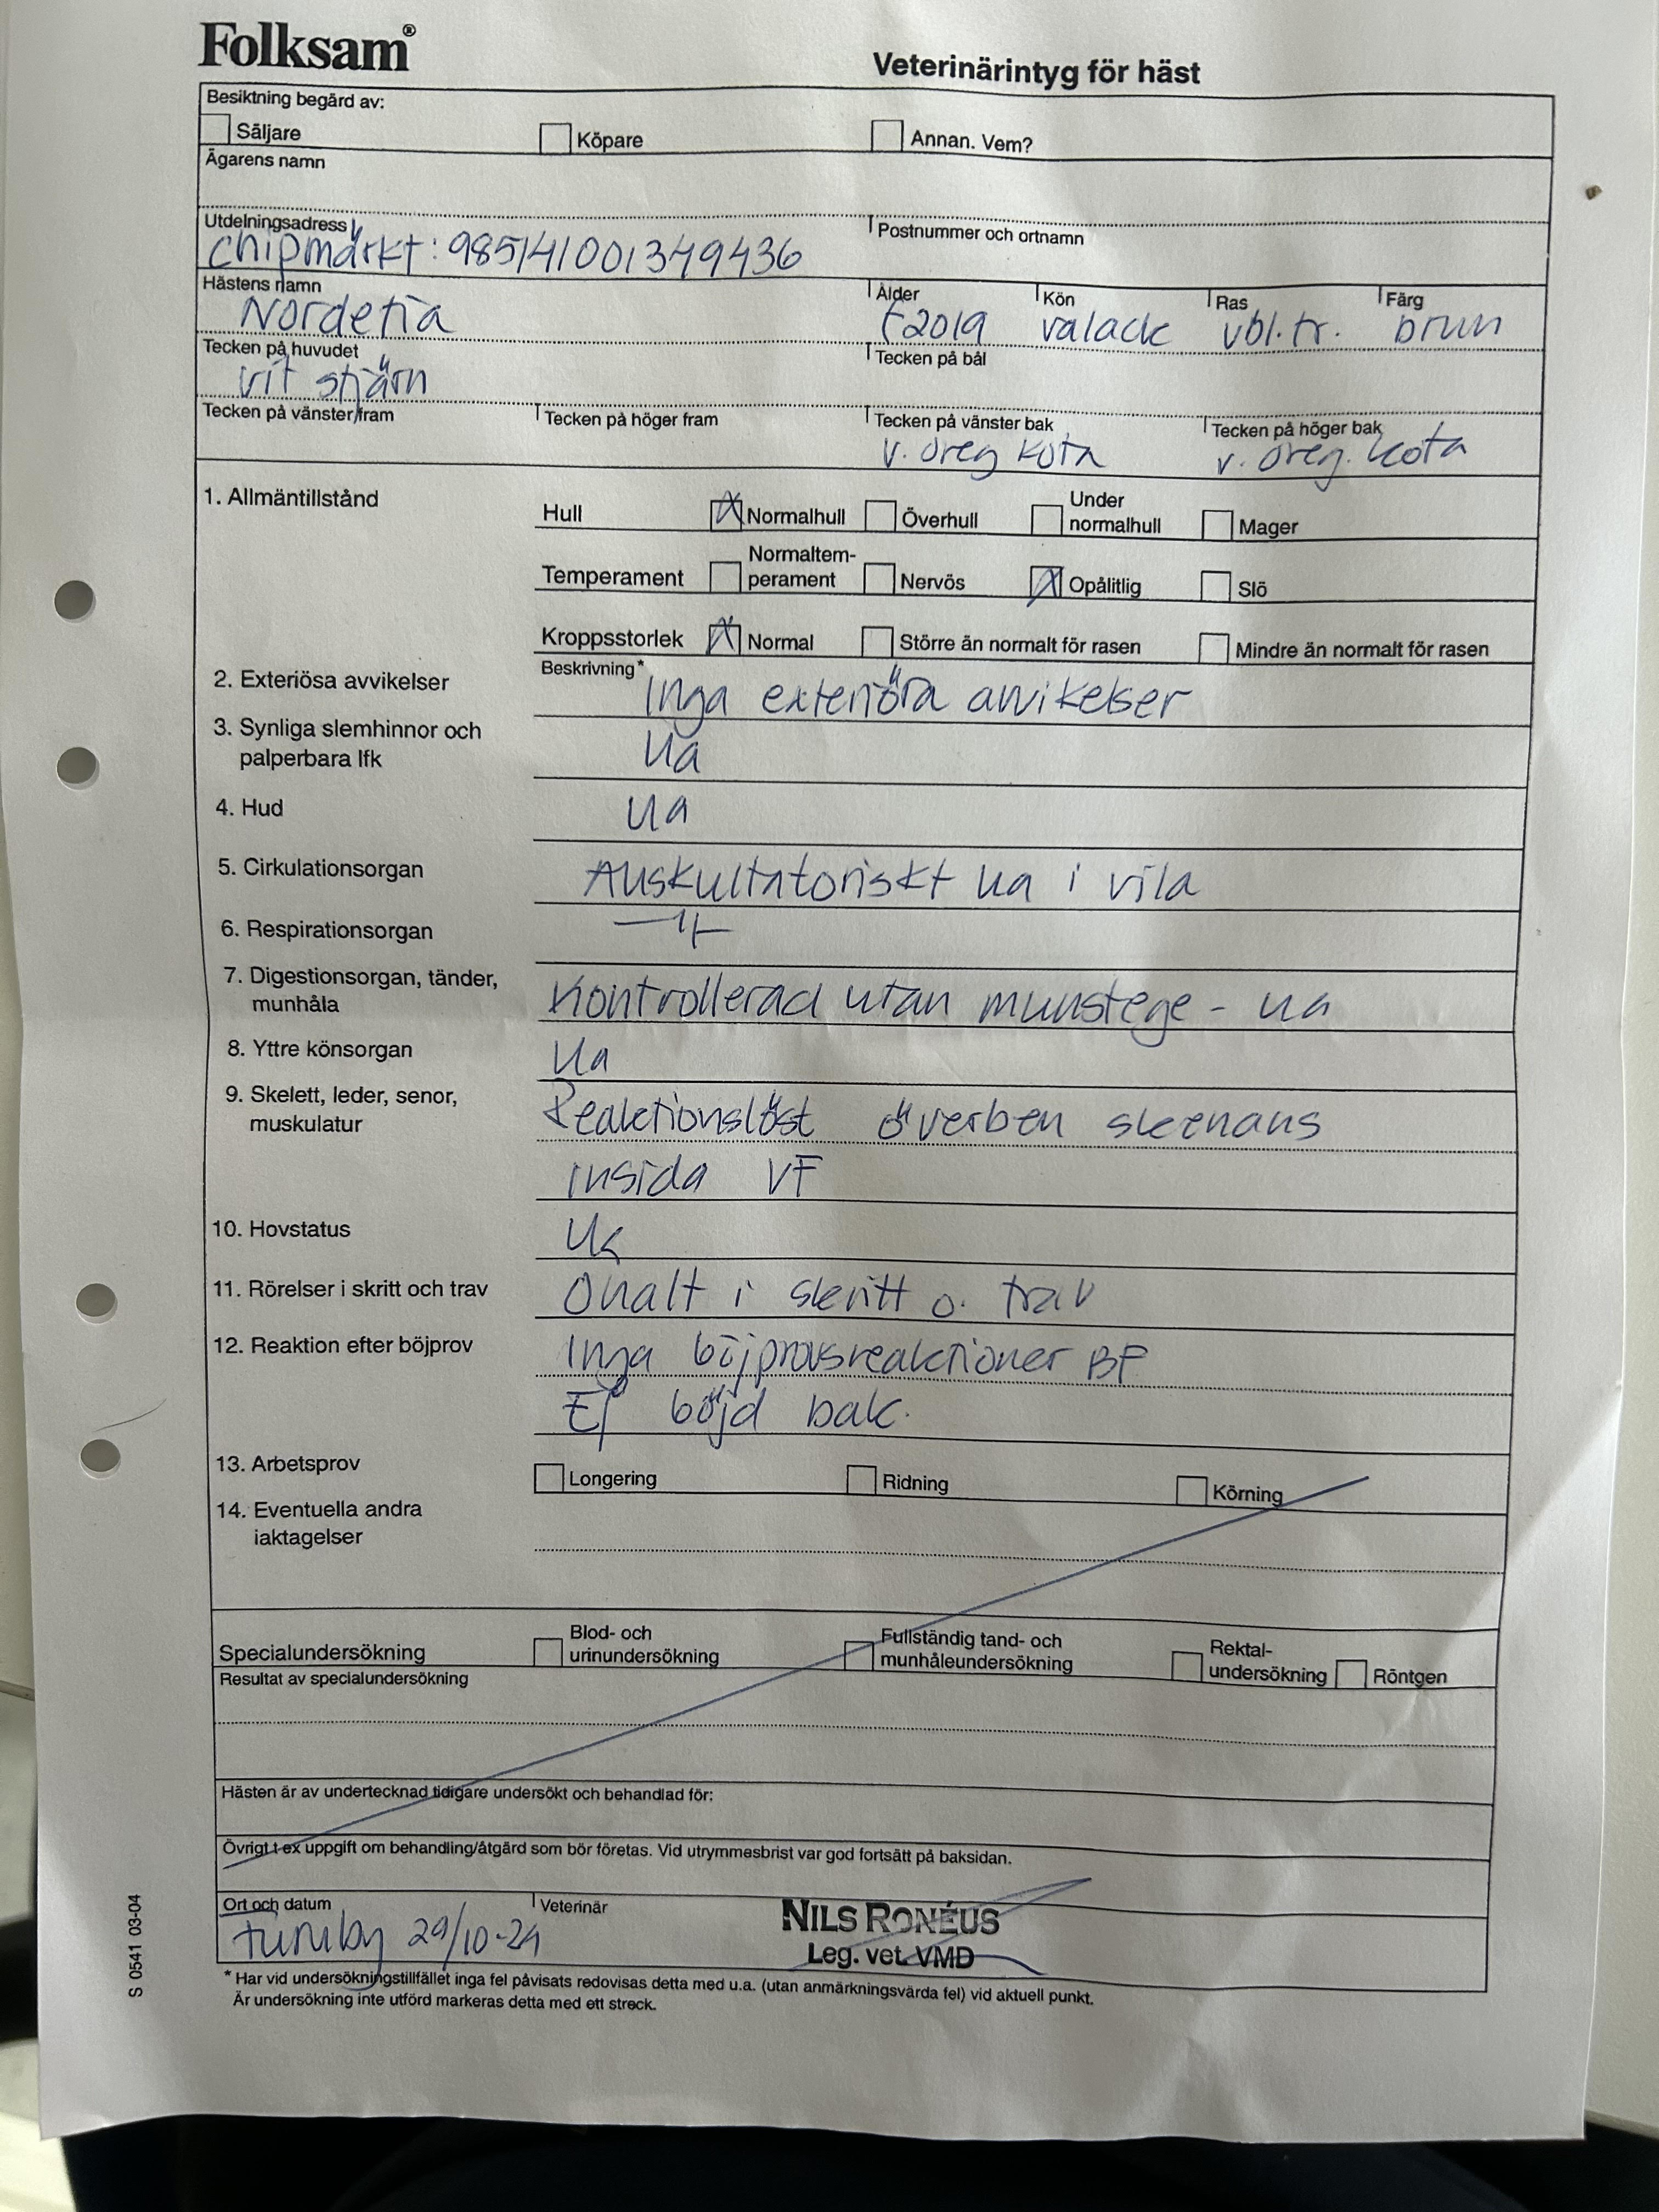 Folksam®
Veterinärintyg för häst
Besiktning begärd av:
Säljare Köpare Annan. Vem?
Ägarens namn
Utdelningsadress Postnummer och ortnamn
Chipmärkt: 985141001349436
Hästens namn Ålder Kön Ras Färg
Nordetia f2019 valack vbl.tr. brun
Tecken på huvudet Tecken på bål
vit stjärn
Tecken på vänster fram Tecken på höger fram Tecken på vänster bak Tecken på höger bak
v. oreg kota v. oreg. kota
1. Allmäntillstånd Hull X Normalhull Överhull Under normalhull Mager
Temperament Normaltem-perament Nervös X Opålitlig Slö
Kroppsstorlek X Normal Större än normalt för rasen Mindre än normalt för rasen
Beskrivning*
2. Exteriösa avvikelser Inga exteriöra avvikelser
3. Synliga slemhinnor och
palperbara lfk ua
4. Hud ua
5. Cirkulationsorgan Auskultatoriskt ua i vila
6. Respirationsorgan —"—
7. Digestionsorgan, tänder,
munhåla Kontrollerad utan munstege - ua
8. Yttre könsorgan Ua
9. Skelett, leder, senor,
muskulatur Reaktionslöst överben skenans
insida VF
10. Hovstatus Ua
11. Rörelser i skritt och trav Ohalt i skritt o. trav
12. Reaktion efter böjprov Inga böjprovsreaktioner BF
Ej böjd bak.
13. Arbetsprov Longering Ridning Körning
14. Eventuella andra
iaktagelser
Specialundersökning Blod- och urinundersökning Fullständig tand- och munhåleundersökning Rektal-undersökning Röntgen
Resultat av specialundersökning
Hästen är av undertecknad tidigare undersökt och behandlad för:
Övrigt t ex uppgift om behandling/åtgärd som bör företas. Vid utrymmesbrist var god fortsätt på baksidan.
Ort och datum Veterinär
29/10-24 NILS RONÉUS
Leg. vet. VMD
* Har vid undersökningstillfället inga fel påvisats redovisas detta med u.a. (utan anmärkningsvärda fel) vid aktuell punkt.
Är undersökning inte utförd markeras detta med ett streck.
S 0541 03-04